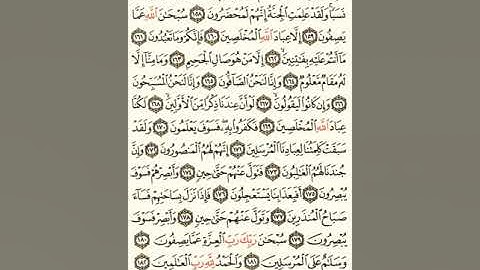 نَسَبًا ۚ وَلَقَدْ عَلِمَتِ الْجِنَّةُ إِنَّهُمْ لَمُحْضَرُونَ ١٥٨ سُبْحَانَ اللَّهِ عَمَّا
يَصِفُونَ ١٥٩ إِلَّا عِبَادَ اللَّهِ الْمُخْلَصِينَ ١٦٠ فَإِنَّكُمْ وَمَا تَعْبُدُونَ ١٦١
مَا أَنتُمْ عَلَيْهِ بِفَاتِنِينَ ١٦٢ إِلَّا مَنْ هُوَ صَالِ الْجَحِيمِ ١٦٣ وَمَا مِنَّا إِلَّا
لَهُ مَقَامٌ مَّعْلُومٌ ١٦٤ وَإِنَّا لَنَحْنُ الصَّافُّونَ ١٦٥ وَإِنَّا لَنَحْنُ الْمُسَبِّحُونَ
١٦٦ وَإِن كَانُوا لَيَقُولُونَ ١٦٧ لَوْ أَنَّ عِندَنَا ذِكْرًا مِّنَ الْأَوَّلِينَ ١٦٨ لَكُنَّا
عِبَادَ اللَّهِ الْمُخْلَصِينَ ١٦٩ فَكَفَرُوا بِهِ ۖ فَسَوْفَ يَعْلَمُونَ ١٧٠ وَلَقَدْ
سَبَقَتْ كَلِمَتُنَا لِعِبَادِنَا الْمُرْسَلِينَ ١٧١ إِنَّهُمْ لَهُمُ الْمَنصُورُونَ ١٧٢ وَإِنَّ
جُندَنَا لَهُمُ الْغَالِبُونَ ١٧٣ فَتَوَلَّ عَنْهُمْ حَتَّىٰ حِينٍ ١٧٤ وَأَبْصِرْهُمْ فَسَوْفَ
يُبْصِرُونَ ١٧٥ أَفَبِعَذَابِنَا يَسْتَعْجِلُونَ ١٧٦ فَإِذَا نَزَلَ بِسَاحَتِهِمْ فَسَاءَ
صَبَاحُ الْمُنذَرِينَ ١٧٧ وَتَوَلَّ عَنْهُمْ حَتَّىٰ حِينٍ ١٧٨ وَأَبْصِرْ فَسَوْفَ
يُبْصِرُونَ ١٧٩ سُبْحَانَ رَبِّكَ رَبِّ الْعِزَّةِ عَمَّا يَصِفُونَ ١٨٠
وَسَلَامٌ عَلَى الْمُرْسَلِينَ ١٨١ وَالْحَمْدُ لِلَّهِ رَبِّ الْعَالَمِينَ ١٨٢